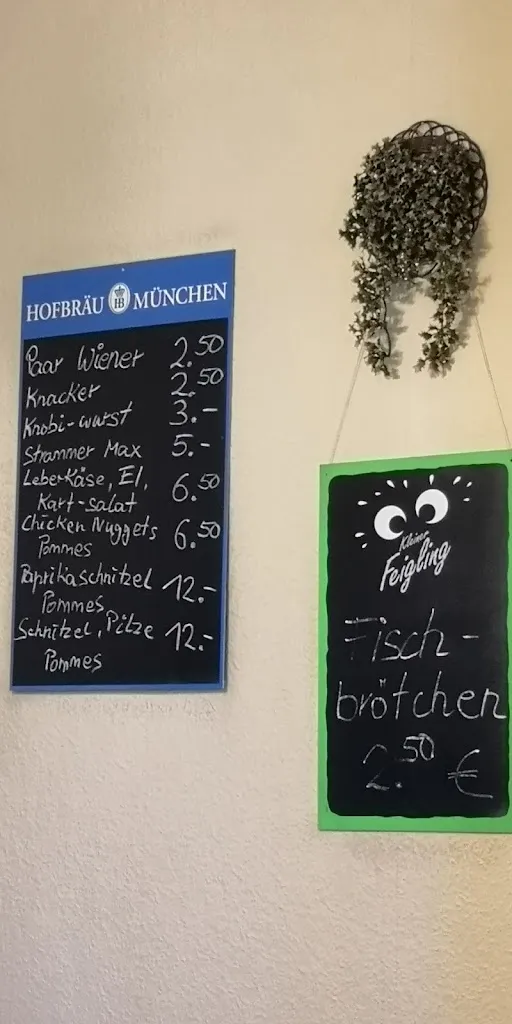 HOFBRÄU HB MÜNCHEN
Paar Wiener 2.50
Knacker 2.50
Knobi-wurst 3.-
Strammer Max 5.-
Leberkäse, EI,
Kart-salat 6.50
Chicken Nuggets
Pommes 6.50
Paprikaschnitzel 12.-
Pommes
Schnitzel, Pilze 12.-
Pommes
Kleiner
Feigling
Fisch-
brötchen
2.50 €